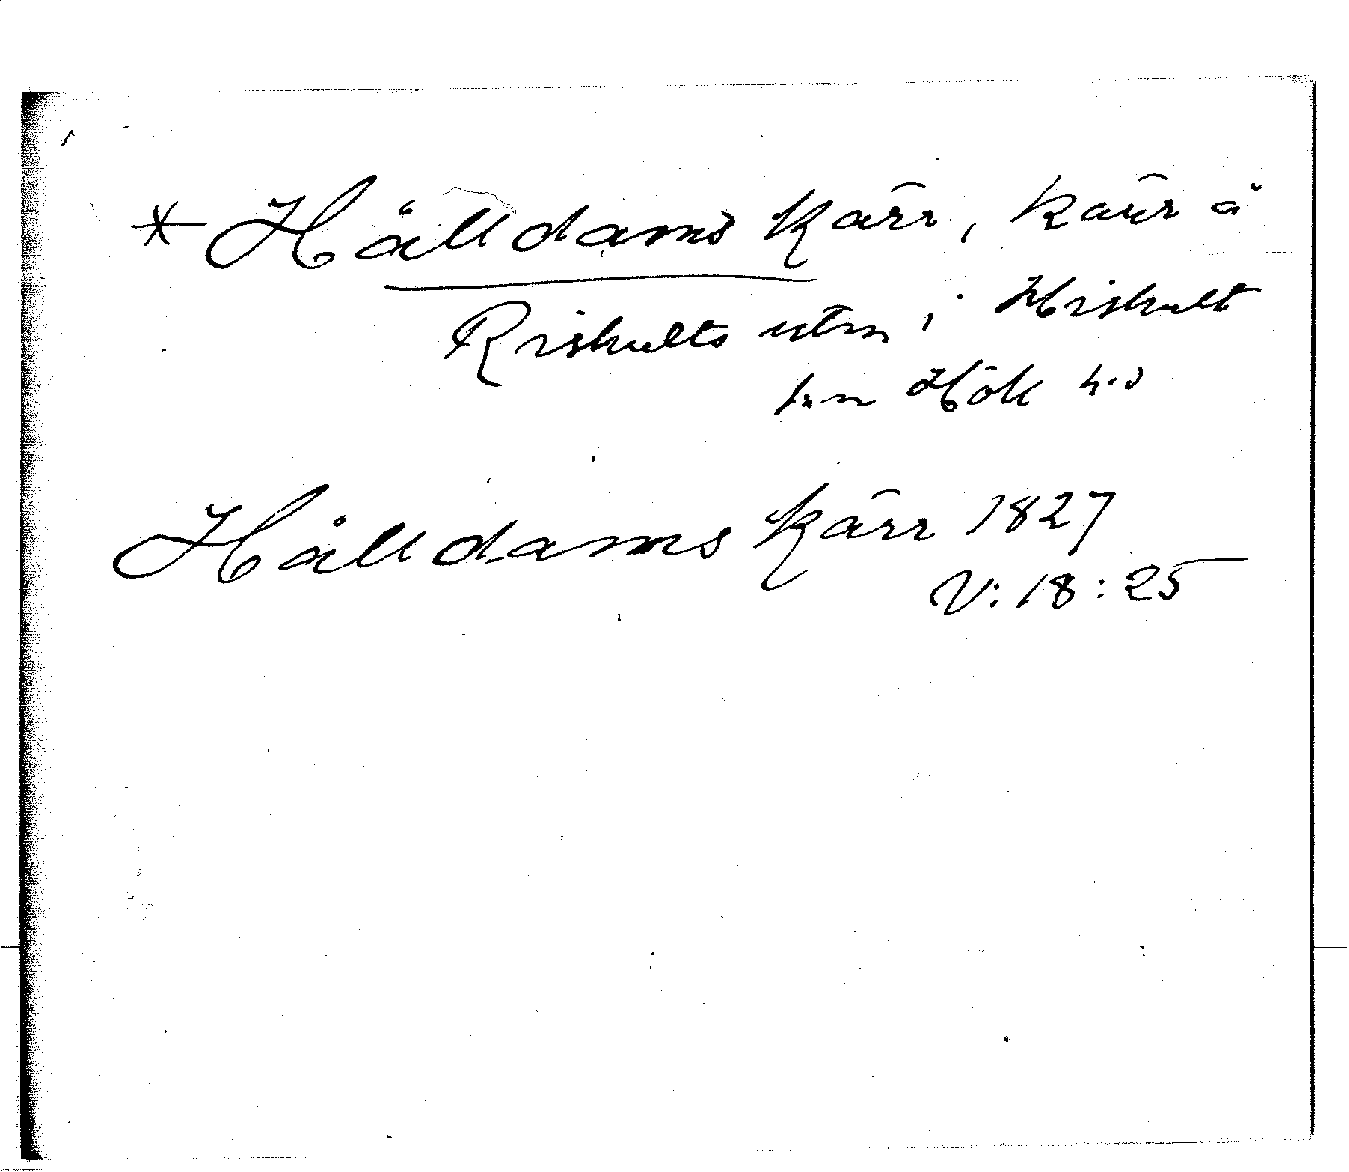 * Hålldams kärr, kärr å
Rishults utm i Hishult
sn Hök hd
Hålldams kärr 1827
V: 18: 25